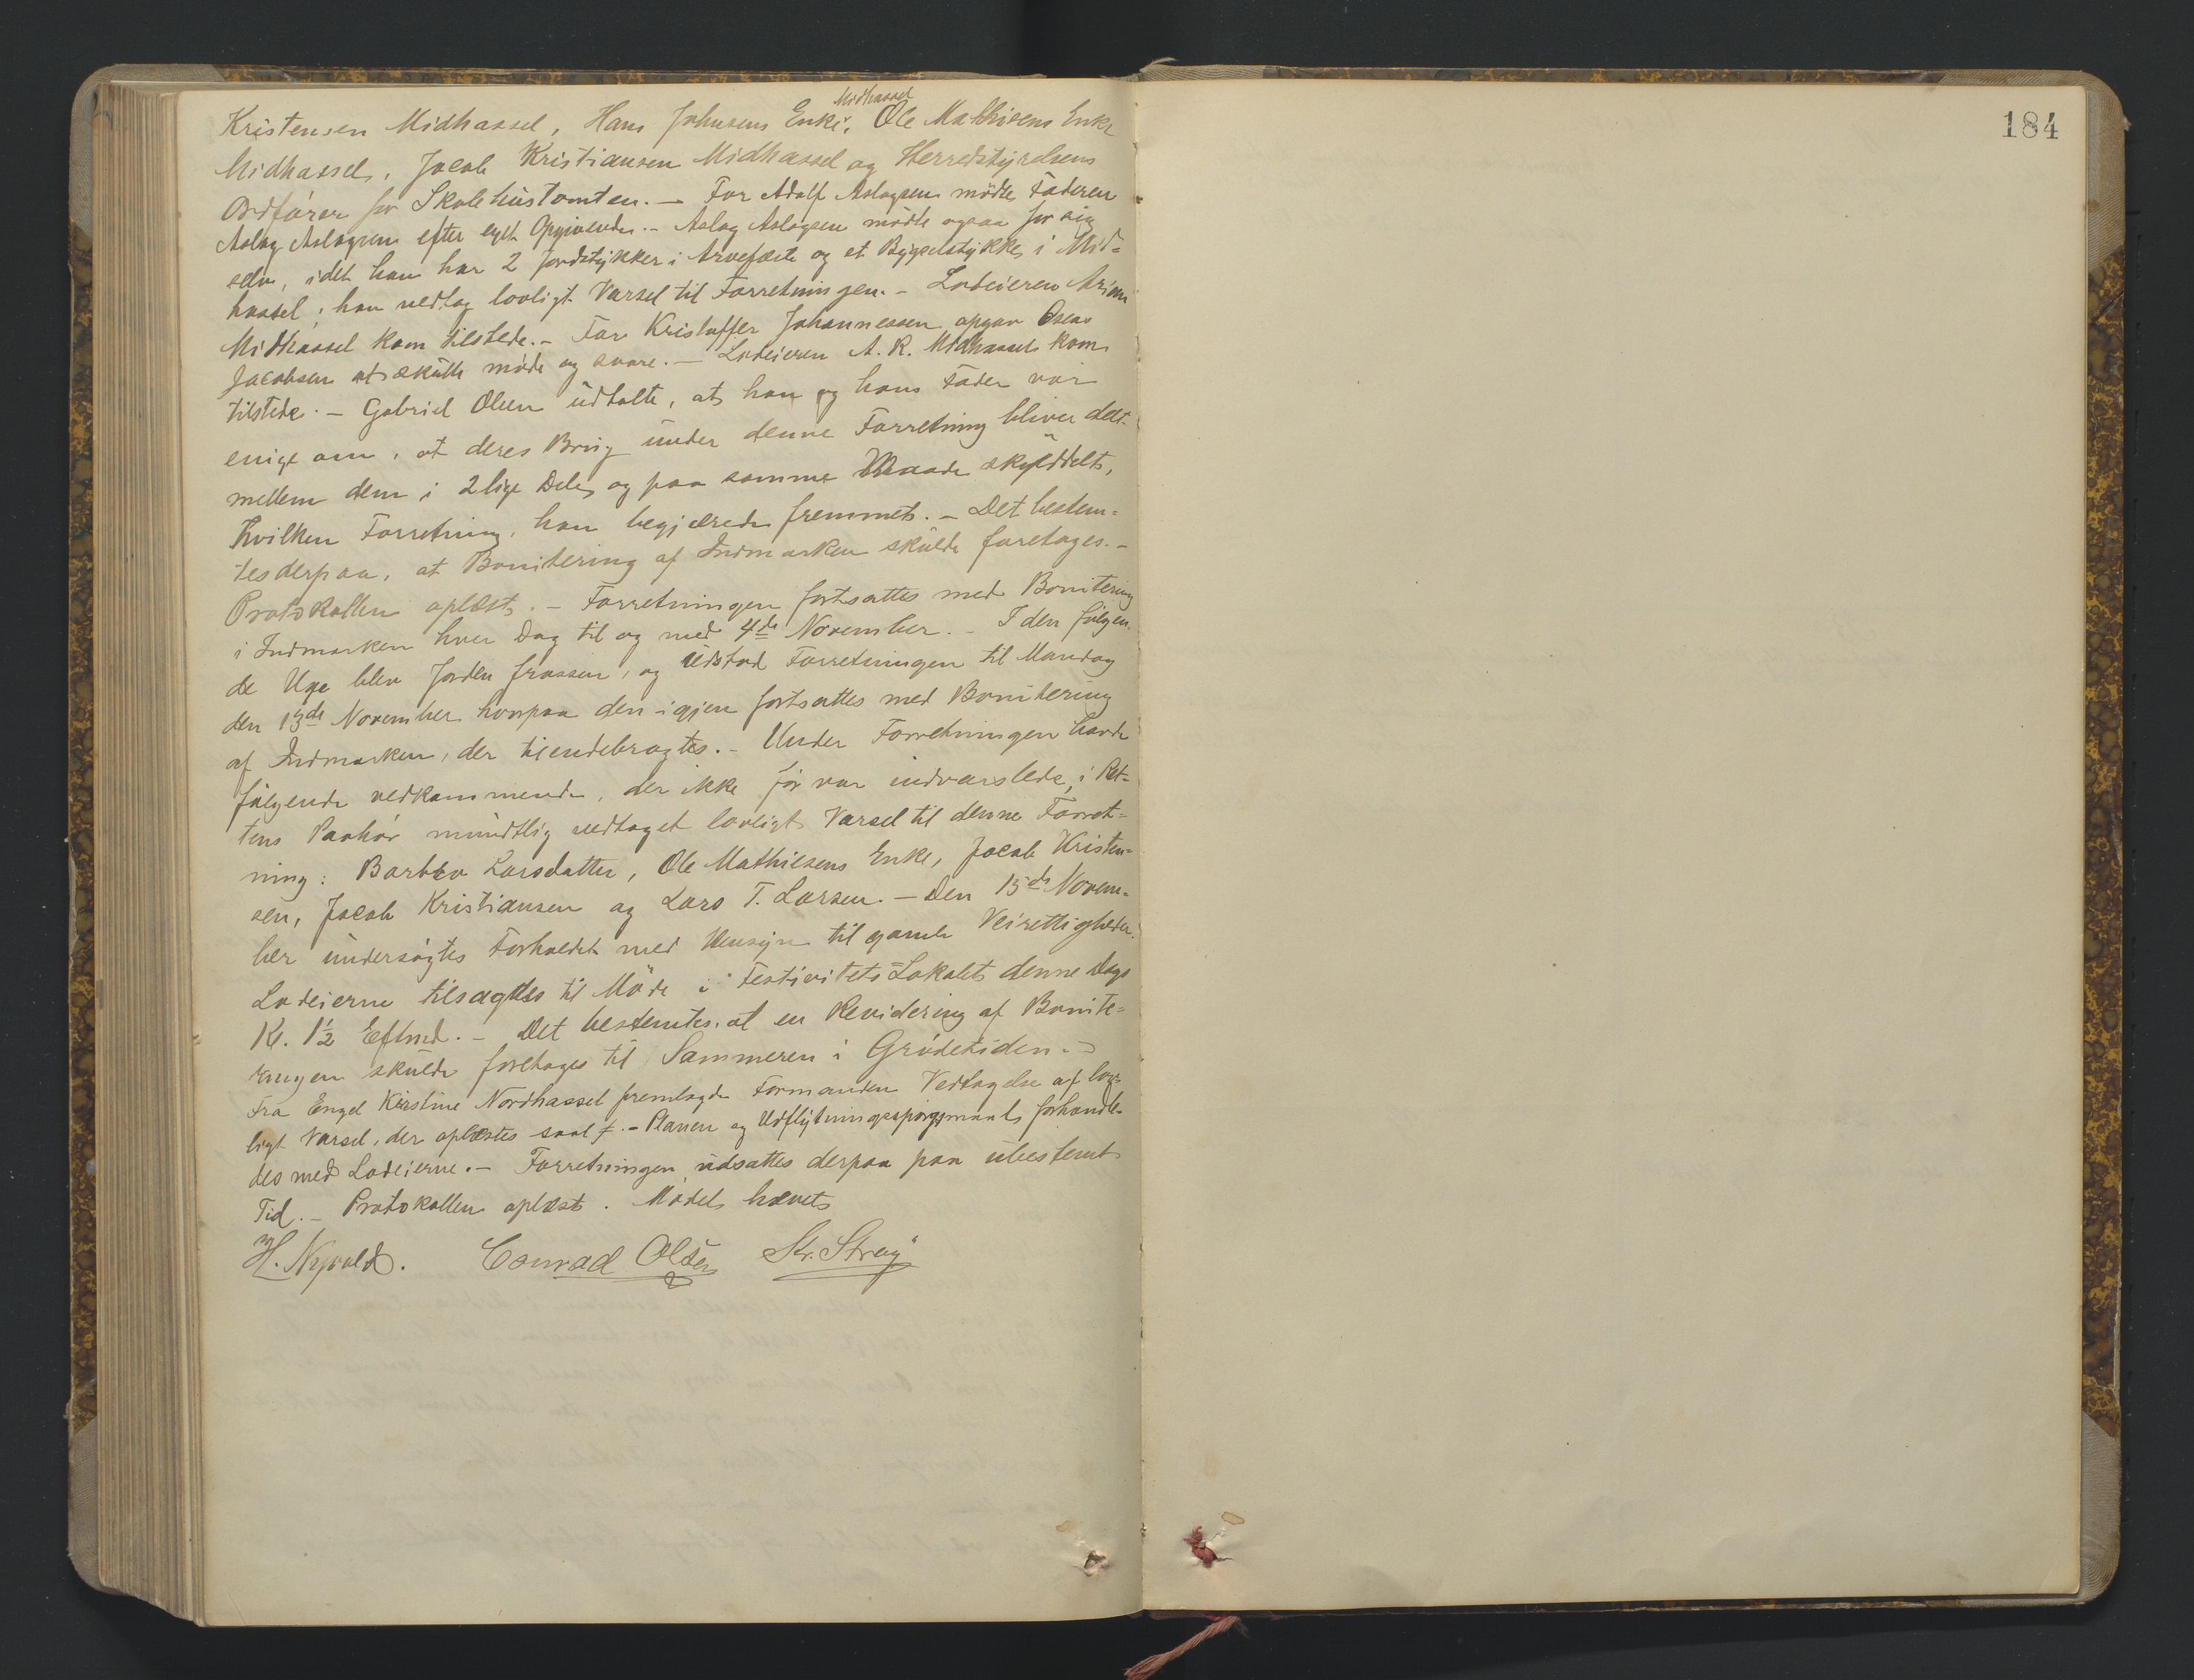 Midhassel
Kristensen Midhassel, Hans Johnsens Enke, Ole Mathisens Enke
Midhassel, Jacob Kristiansen Midhassel og Herredstyrelsens
Ordförer for Skolehustomten. — For Adolf Aslagsen mödte Faderen
Aslag Aslagsen efter eget Opgivende. - Aslag Aslagsen mödte ogsaa for sig
selv, idet han har 2 Jordstykker i Arvefæste og et Bygselstykke i Mid=
hassel; han vedtog lovligt Varsel til Forretningen. - Lodeieren
Midhassel kom tilstede. - For Kristoffer Johannessen opgav Oscar
Jacobsen at skulle möde og svare. — Lodeieren A. K. Midhassel kom
tilstede. — Gabriel Olsen udtalte, at han og hans Fader var
enige om, at deres Brug under denne Forretning bliver delt
mellem dem i 2 lige Dele, og paa samme Maade skylddelt,
hvilken Forretning han begjærede fremmet. - Det bestem=
tes derpaa, at Bonitering af Indmarken skulde foretages. -
Protokollen oplæst. - Forretningen fortsattes med Bonitering
i Indmarken hver Dag til og med 4de November. - I den fölgen
de Uge blev Jorden frossen, og udstod Forretningen til Mandag
den 13de November hvorpaa den igjen fortsattes med Bonitering
af Indmarken, der tilendebragtes. - Under Forretningen havde
fölgende vedkommende, der ikke för var indvarslede, i Ret=
tens Paahör mundtlig vedtaget lovligt Varsel til denne Forret=
ning: Barbro Larsdatter, Ole Mathisens Enke, Jacob Kristen=
sen, Jacob Kristiansen og Lars T. Larsen. — Den 15de Novem=
ber undersögtes Forholdet med Hensyn til gamle Veirettigheder.
Lodeierne tilsagdes til Möde i Festivitets=Lokalet denne Dags
Kl. 1½ Eftmd. - Det bestemtes, at en Revidering af Bonite=
ringen skulde foretages til Sommeren i Grödetiden. -
Fra Engel Kirstine Nordhassel fremlagde Formanden Vedtagelse af lov=
ligt Varsel, der oplæstes saal. - Planen og Udflytningsspörgsmaalet forhandle=
des med Lodeierne. — Forretningen udsattes derpaa paa ubestemt
Tid. — Protokollen oplæst. Mödet hævet
H. Nyvold. Conrad Olsen Str. Stray
184